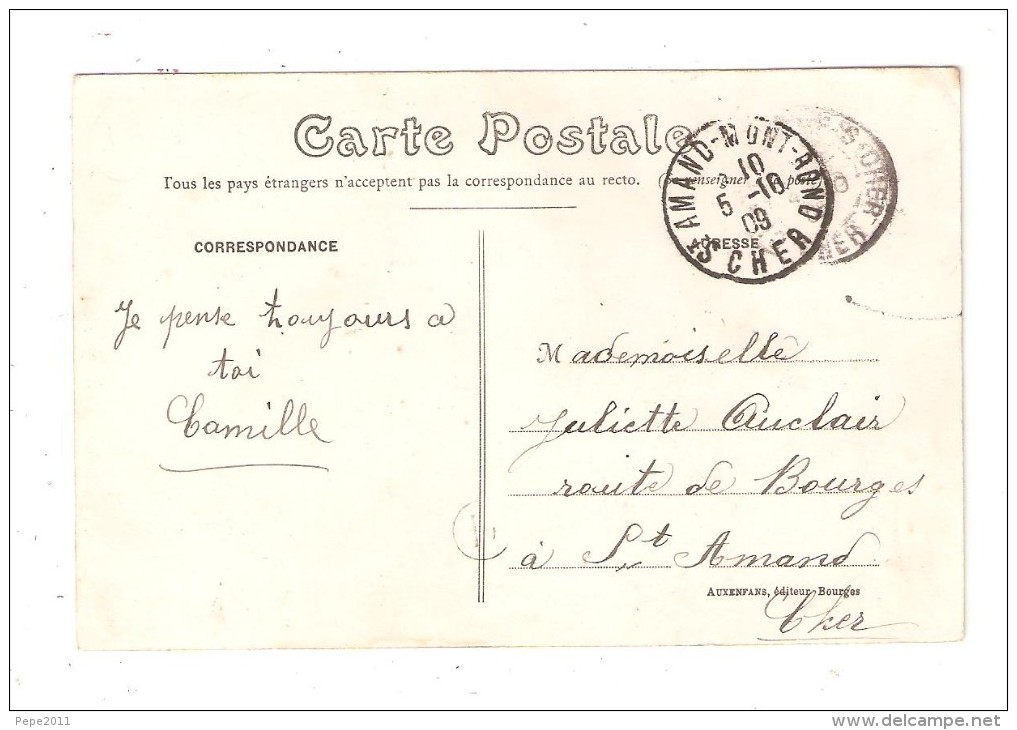 Carte Postale
Tous les pays étrangers n'acceptent pas la correspondance au recto. (Se renseigner à la poste)
ST AMAND-MONT-ROND
10
5 -10
09
CHER
CORRESPONDANCE
ADRESSE
Je pense toujours a
toi
Camille
Mademoiselle
Juliette Auclair
route de Bourges
à St Amand
AUXENFANS, éditeur, Bourges
Cher
Pepe2011
www.delcampe.net